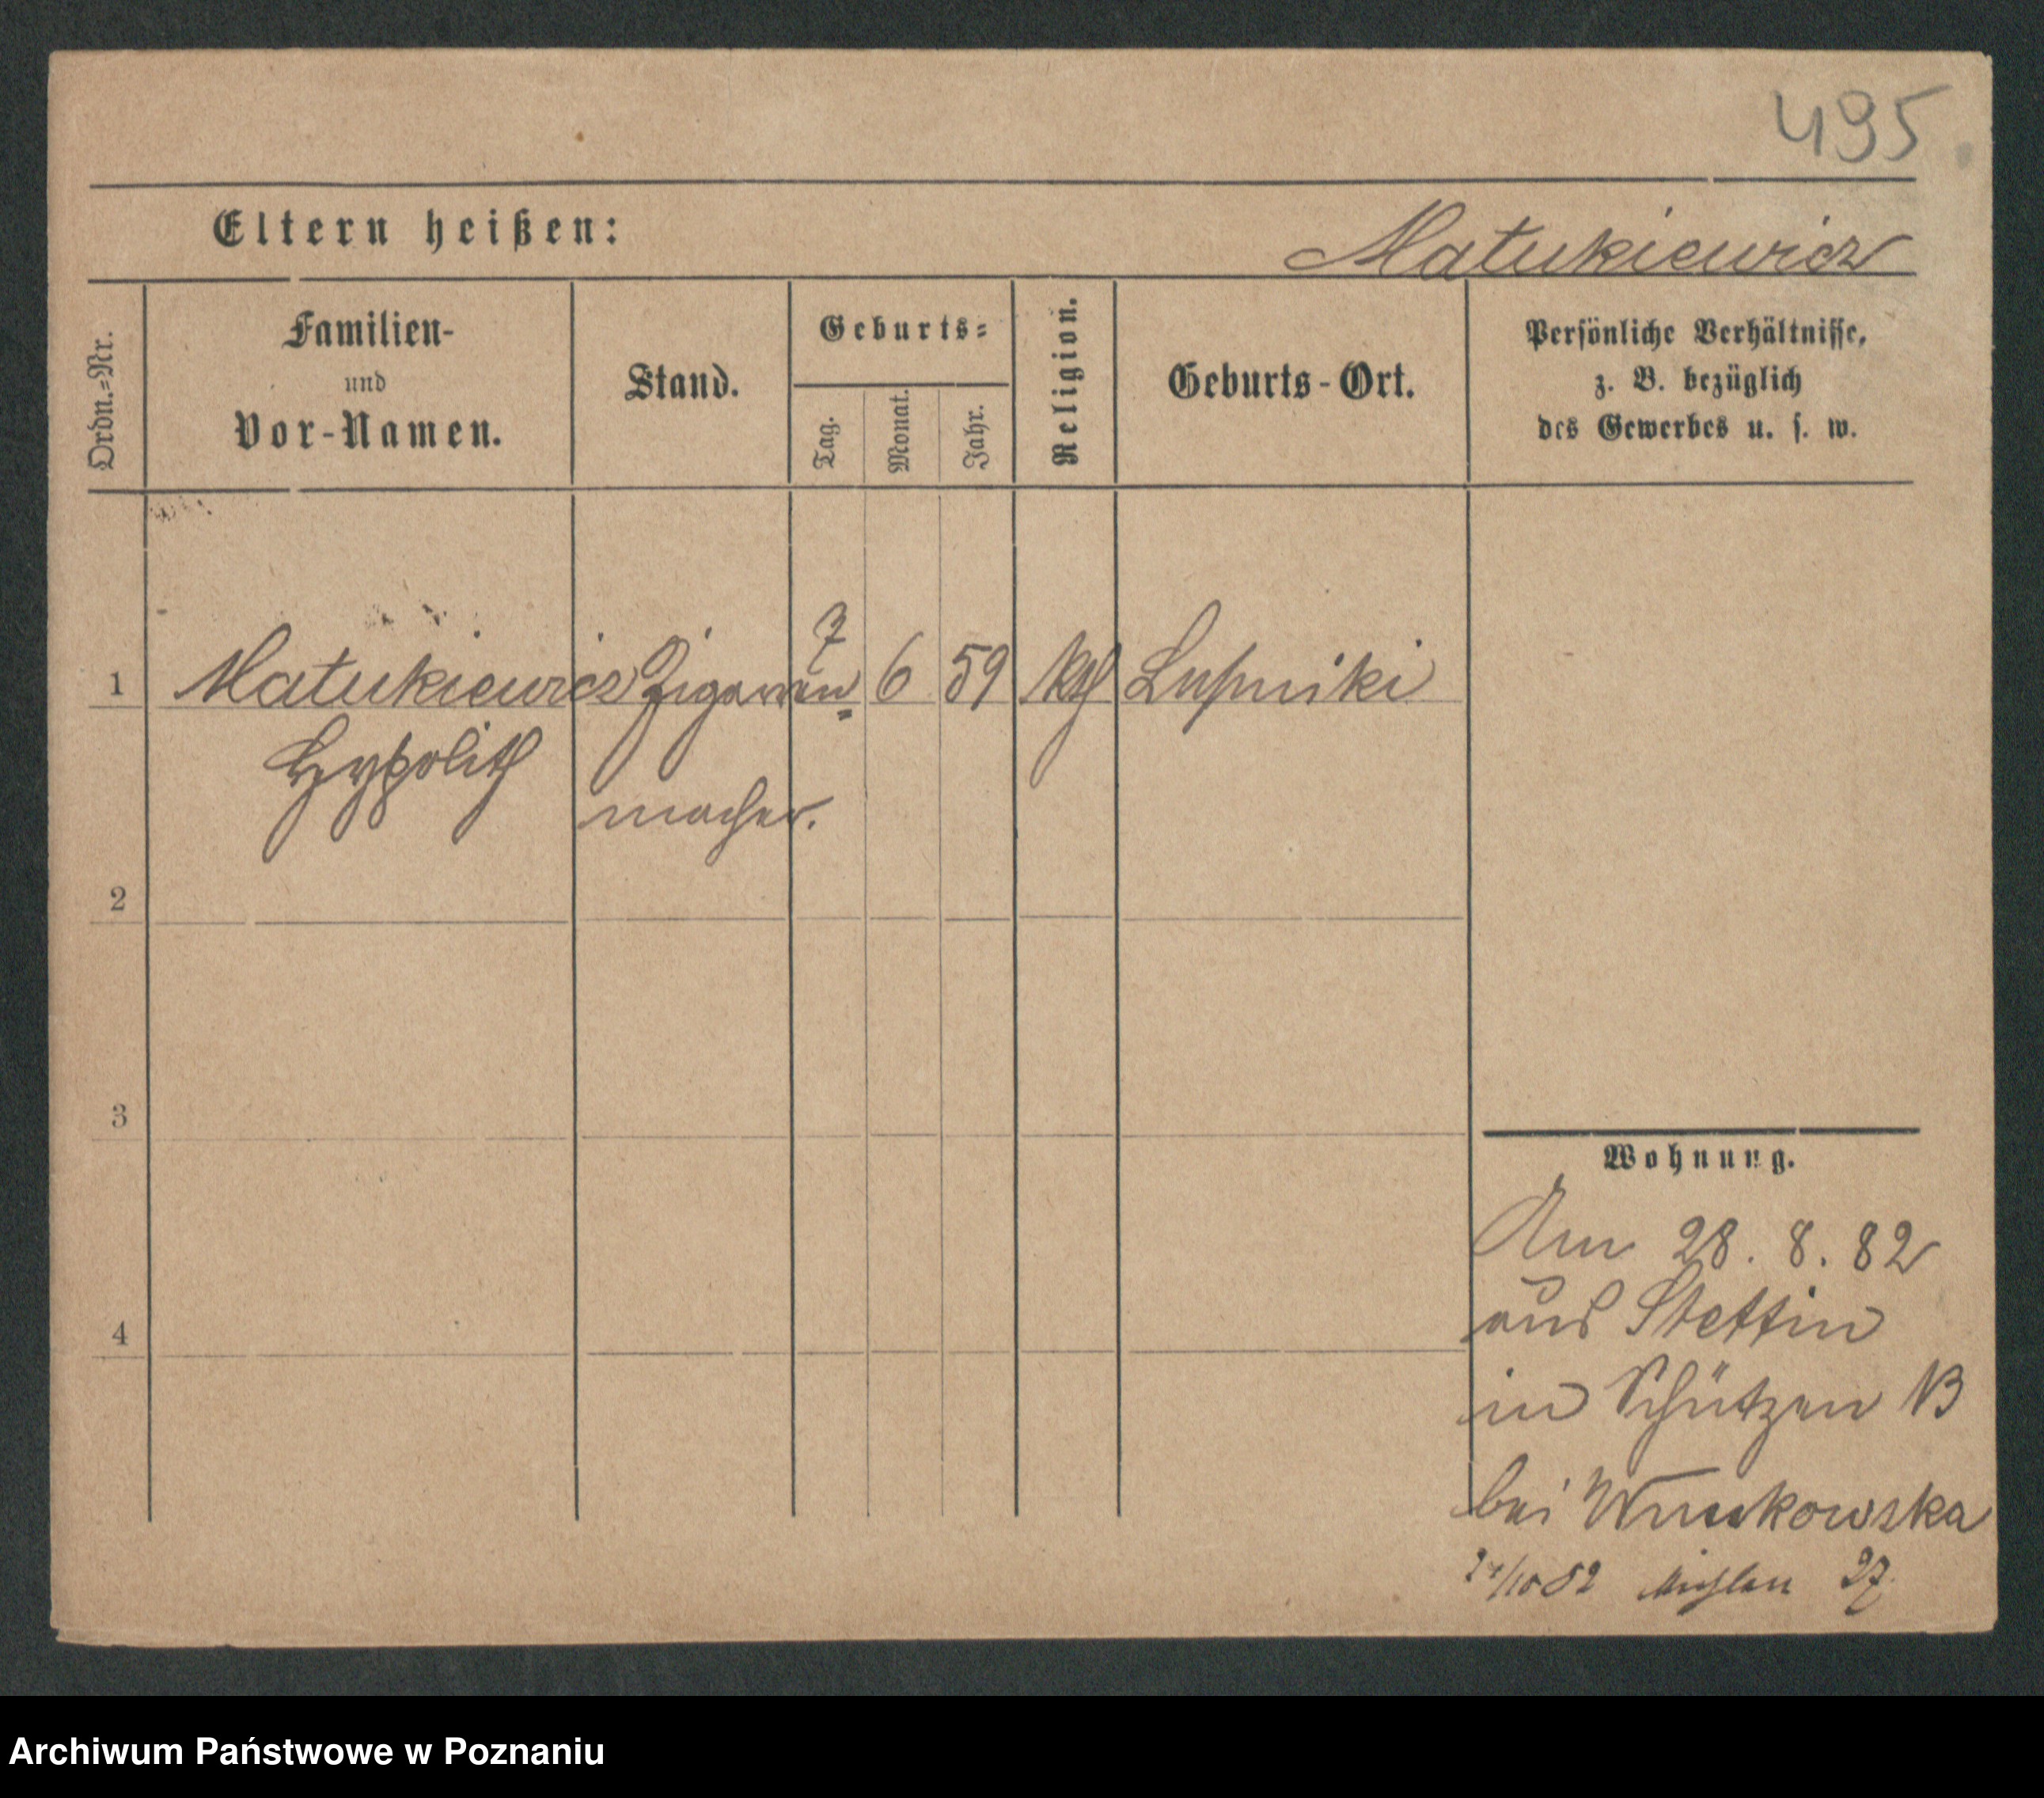 495
Eltern heißen:
Matukiewicz
Ordn.=Nr.
Familien-
und
Vor-Namen.
Stand.
Geburts=
Tag.
Monat.
Jahr.
Religion.
Geburts-Ort.
Persönliche Verhältnisse,
z. B. bezüglich
des Gewerbes u. s. w.
1 Matukiewicz Zigarren= 7 6 59 kth
Hypolith
macher.
2
3
4
Wohnung.
Am 28. 8. 82
aus Stettin
in Schützen 13
bei
27
Archiwum Państwowe w Poznaniu